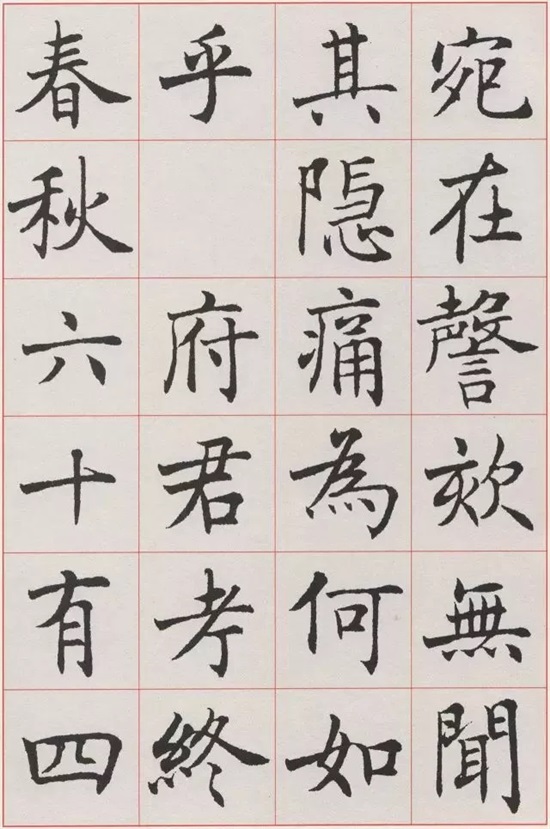 宛在謦欬無聞
其隱痛為何如
乎 府君考終
春秋六十有四